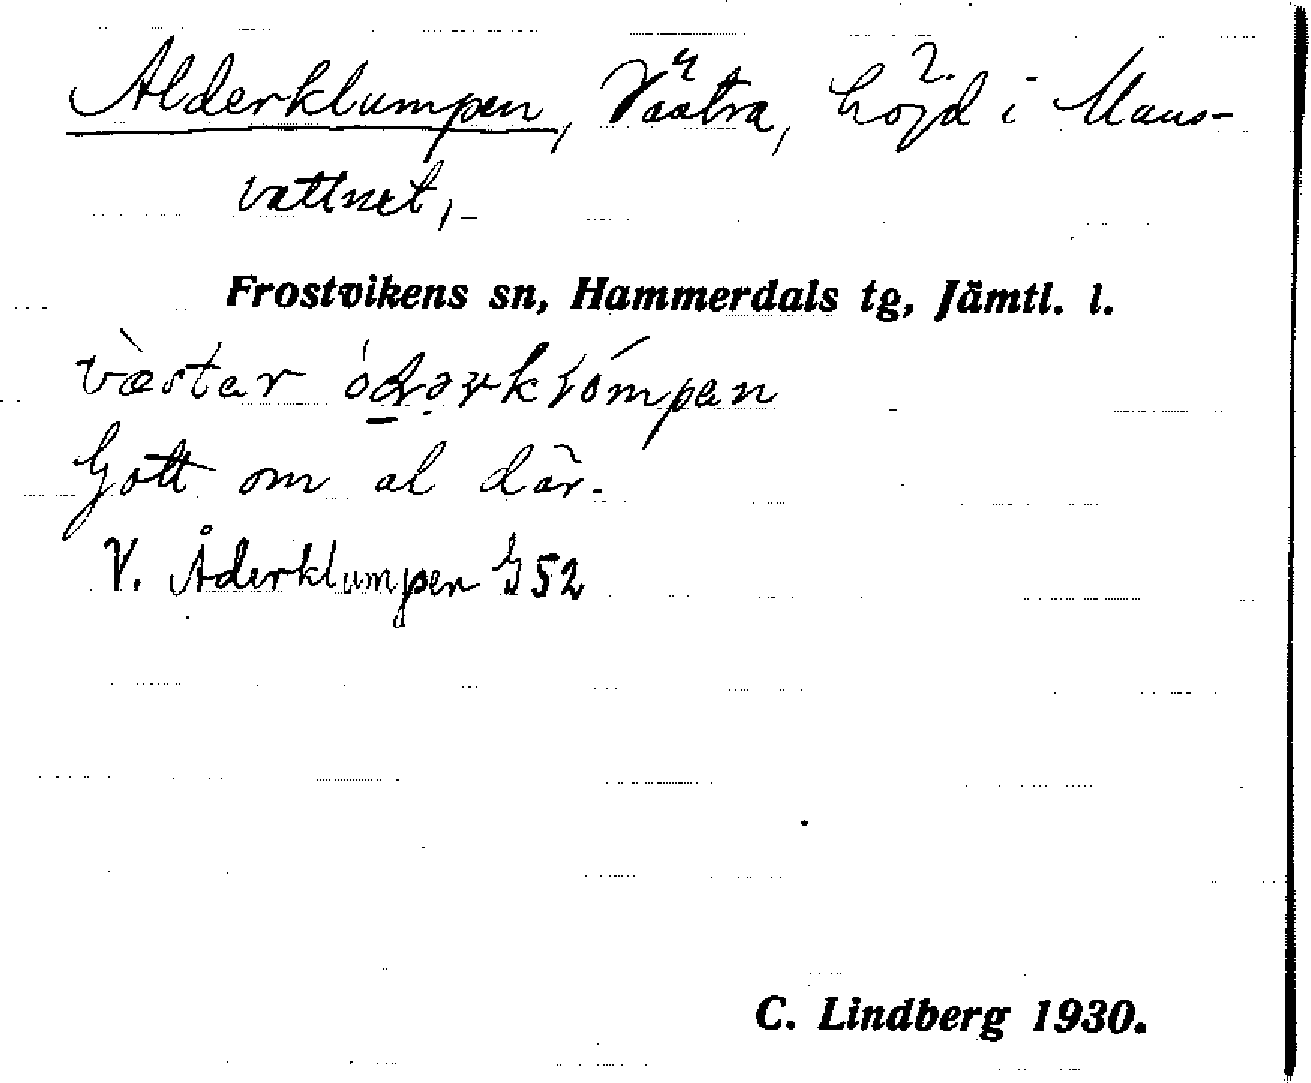 Alderklumpen, Västra, höjd i Mans-
vattnet,
Frostvikens sn, Hammerdals tg, Jämtl. l.
Gott om al där.
V. Åderklumpen G 52
C. Lindberg 1930.